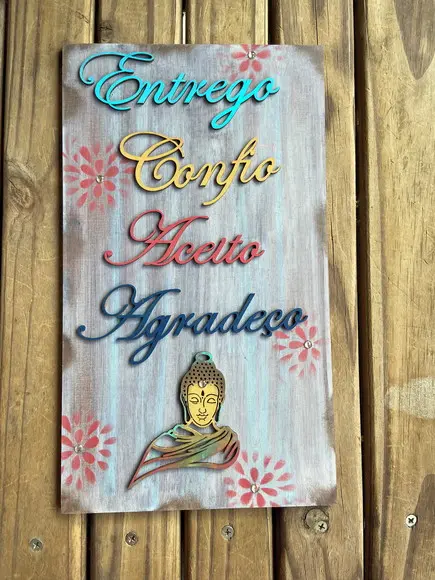 Entrego
Confio
Aceito
Agradeço